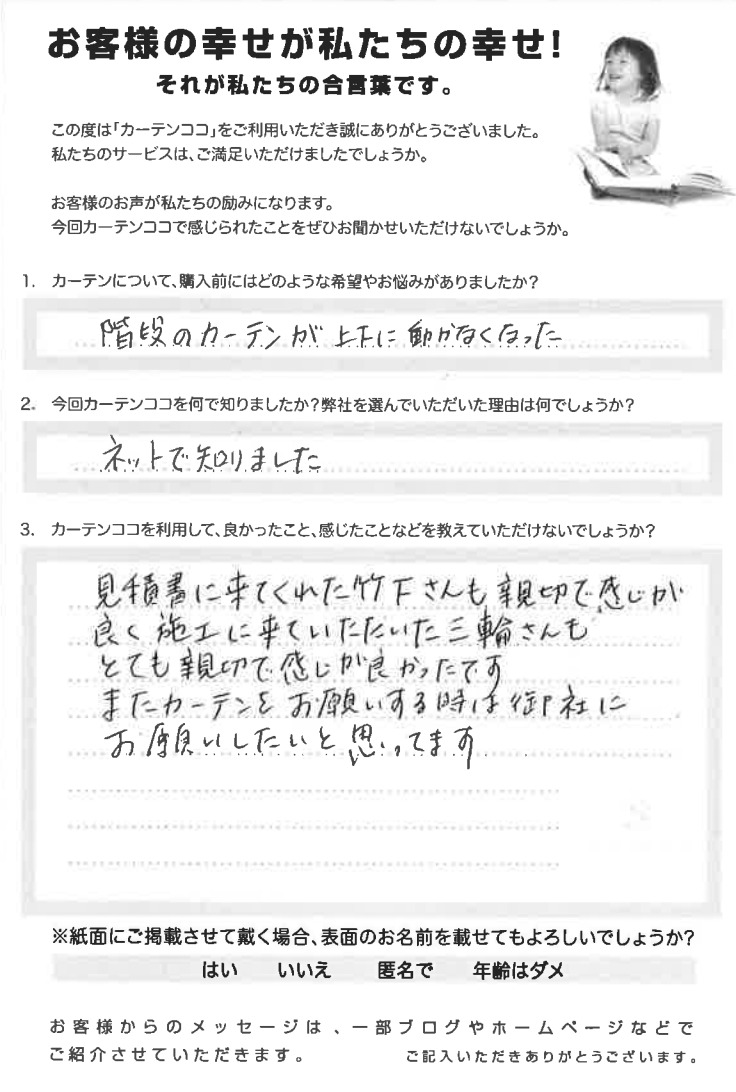 お客様の幸せが私たちの幸せ!
それが私たちの合言葉です。
この度は「カーテンココ」をご利用いただき誠にありがとうございました。
私たちのサービスは、ご満足いただけましたでしょうか。
お客様のお声が私たちの励みになります。
今回カーテンココで感じられたことをぜひお聞かせいただけないでしょうか。
1. カーテンについて、購入前にはどのような希望やお悩みがありましたか?
階段のカーテンが上下に動かなくなった
2. 今回カーテンココを何で知りましたか?弊社を選んでいただいた理由は何でしょうか?
ネットで知りました
3. カーテンココを利用して、良かったこと、感じたことなどを教えていただけないでしょうか?
見積書に来てくれた竹下さんも親切で感じが
良く施工に来ていただいた三輪さんも
とても親切で感じが良かったです
またカーテンをお願いする時は御社に
お願いしたいと思ってます
※紙面にご掲載させて戴く場合、表面のお名前を載せてもよろしいでしょうか?
はい いいえ 匿名で 年齢はダメ
お客様からのメッセージは、一部ブログやホームページなどで
ご紹介させていただきます。 ご記入いただきありがとうございます。